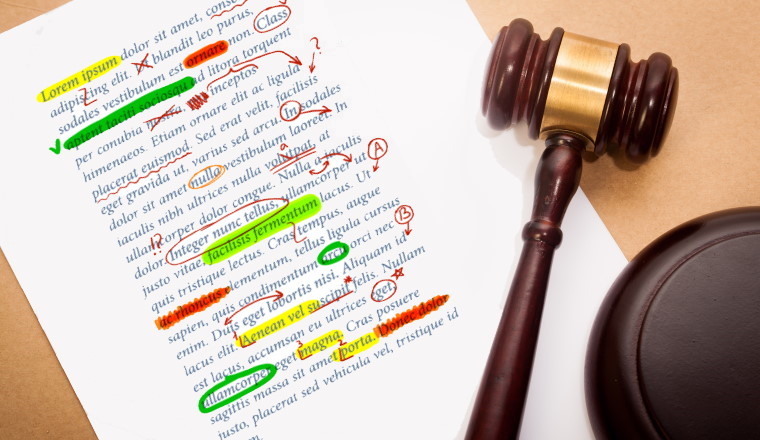 Lorem ipsum dolor sit amet, conse
adipiscing elit. blandit leo purus,
sodales vestibulum est ornare non. Class
aptent taciti sociosqu ad litora torquent
per conubia nostra, inceptos
himenaeos. Etiam ornare elit ac ligula
placerat euismod. Sed erat velit, facilisis
eget gravida ut, varius sed arcu. In sodales
dolor sit amet nulla vestibulum laoreet. In
iaculis nibh ultrices nulla volutpat, at
ullamcorper dolor congue. Nulla a iaculis
dolor. Integer nunc tellus, ullamcorper ut
justo vitae, facilisis fermentum lacus. Ut
quis tristique lectus. Cras tempus, augue
ac rhoncus elementum, tellus ligula cursus
sapien, quis condimentum orci orci nec
enim. Duis eget lobortis nisi. Aliquam id
lacus elit. Aenean vel suscipit felis. Nullam
est lacus, accumsan eu ultrices eget,
ullamcorper eget magna. Cras posuere
sagittis massa sit amet porta. Donec dolor
justo, placerat sed vehicula vel, tristique id
?
a
A
!?
B
1
3
2